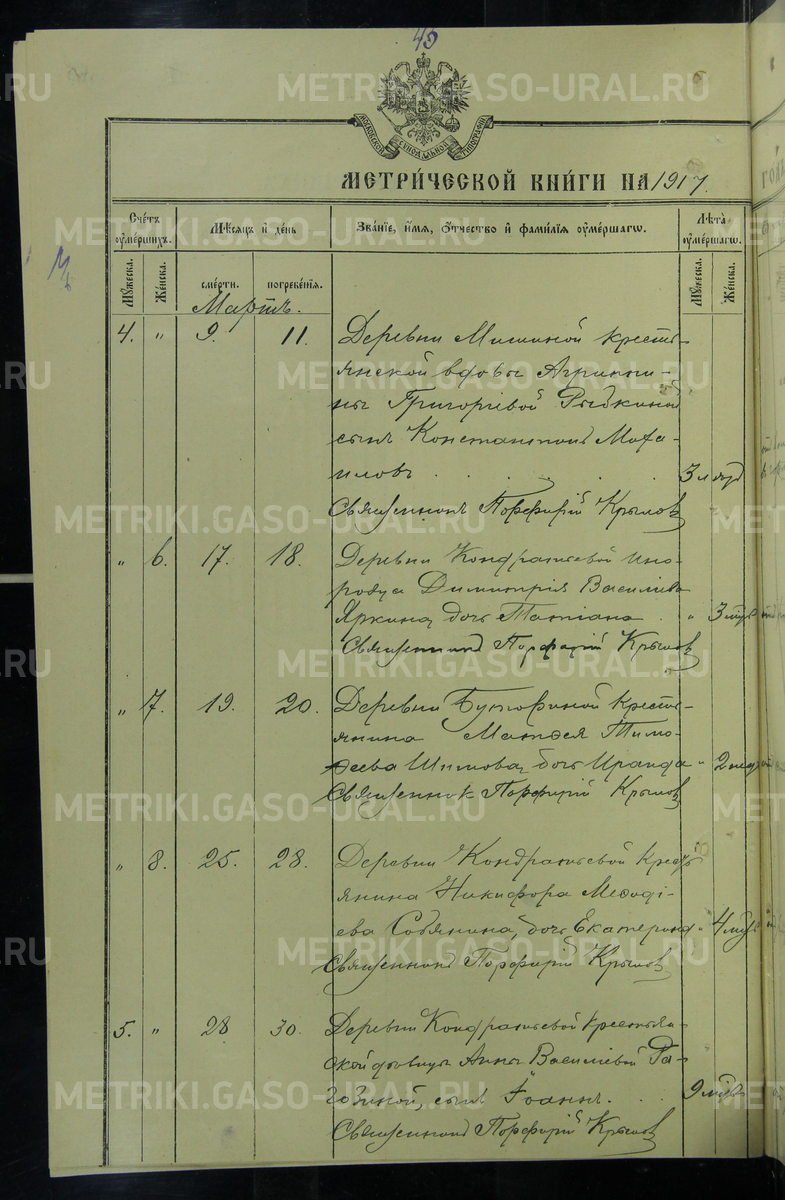 45
МОСКОВСКОЙ СѴНОДАЛЬНОЙ ТИПОГРАФІИ
МЕТРИ́ЧЕСКОЙ КНИ́ГИ НА 1917.
Сче́тъ ᲂу҆ме́ршихъ.
Мѣ́сяцъ и҆ де́нь
Зва́нїе, и҆́мя, ѻ҆́тчество и҆ фами́лїя ᲂу҆ме́ршагѡ.
Лѣ́та ᲂу҆ме́ршагѡ.
Мꙋ́жеска.
Же́нска.
сме́рти.
погребе́нїя.
Мꙋ́жеска.
Же́нска.
Мартъ.
4. " 9. 11. Деревни Мишиной кресть-
янской вдовы Агрипи-
ны Григоріевой Рыбкиной
сынъ Константинъ Миха-
иловъ
Священникъ Порфирій Крыловъ
" 6. 17. 18. Деревни Кондратьевой ино-
родца Димитрія Василіева
Яркина, дочь Татіана "
Священникъ Порфирій Крыловъ
" 7. 19. 20. Деревни Буториной кресть-
янина Матѳея Тимо-
ѳеева Шимова, дочь Ираида "
Священникъ Порфирій Крыловъ
" 8. 25. 28. Деревни Кондратьевой Крест-
янина Никифора Меѳоді-
ева Собянина, дочь Екатерина "
Священникъ Порфирій Крыловъ
5. " 28 30. Деревни Кондратьевой Крестьян-
ской дѣвицы Анны Василіевой Ра-
гозиной, сынъ Іоаннъ.
Священникъ Порфирій Крыловъ
METRIKI.GASO-URAL.RU